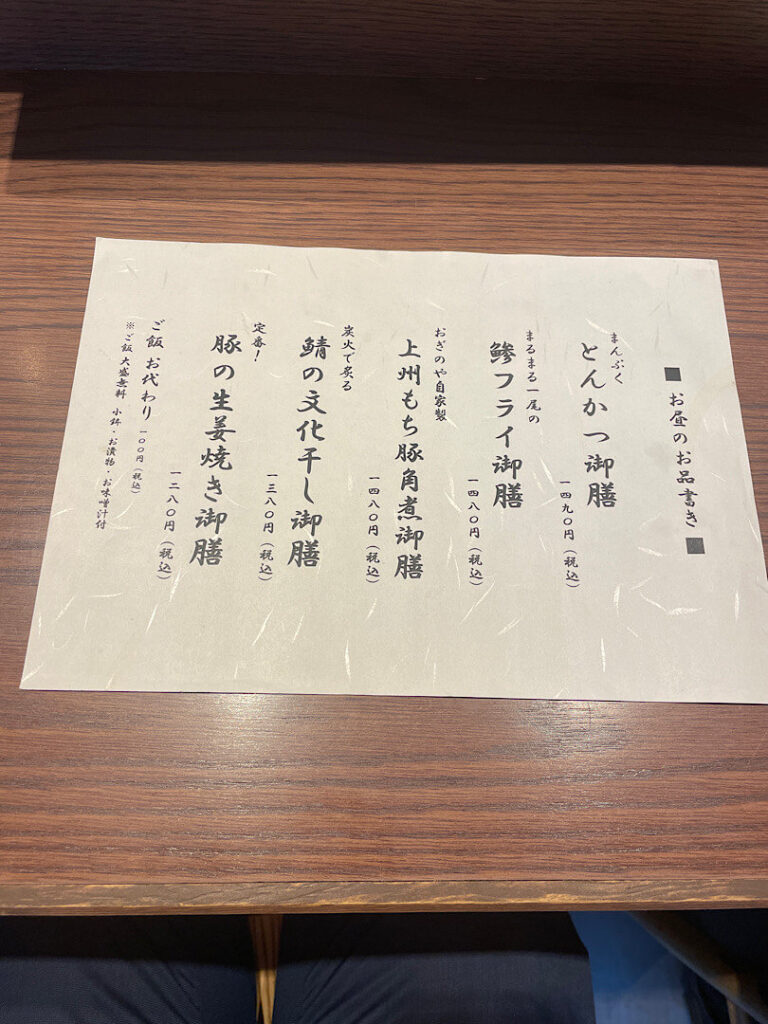 ■お昼のお品書き■
まんぷく
とんかつ御膳
一四九〇円(税込)
まるまる一尾の
鯵フライ御膳
一四八〇円(税込)
おぎのや自家製
上州もち豚角煮御膳
一四八〇円(税込)
炭火で炙る
鯖の文化干し御膳
一三八〇円(税込)
定番！
豚の生姜焼き御膳
一二八〇円(税込)
ご飯 お代わり 一〇〇円(税込)
※ご飯大盛無料 小鉢・お漬物・お味噌汁付